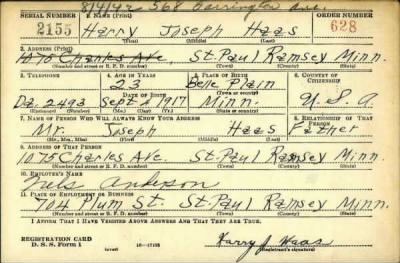 8/4/42 568 Carrington Ave.
SERIAL NUMBER 1. NAME (Print) ORDER NUMBER
2155 Harry Joseph Haas 628
(First) (Middle) (Last)
2. ADDRESS (Print)
1075 Charles Ave, St. Paul Ramsey Minn.
(Number and street or R. F. D. number) (Town) (County) (State)
3. TELEPHONE 4. AGE IN YEARS 5. PLACE OF BIRTH 6. COUNTRY OF CITIZENSHIP
23 Belle Plain
DATE OF BIRTH (Town or county)
Da. 2493 Sept 2 1917 Minn. U.S.A.
(Exchange) (Number) (Mo.) (Day) (Yr.) (State or country)
7. NAME OF PERSON WHO WILL ALWAYS KNOW YOUR ADDRESS 8. RELATIONSHIP OF THAT PERSON
Mr. Joseph Haas Father
(Mr., Mrs., Miss) (First) (Middle) (Last)
9. ADDRESS OF THAT PERSON
1075 Charles Ave. St. Paul Ramsey Minn.
(Number and street or R. F. D. number) (Town) (County) (State)
10. EMPLOYER'S NAME
Nels Anderson
11. PLACE OF EMPLOYMENT OR BUSINESS
704 Plum St. St. Paul Ramsey Minn.
(Number and street or R. F. D. number) (Town) (County) (State)
I AFFIRM THAT I HAVE VERIFIED ABOVE ANSWERS AND THAT THEY ARE TRUE.
REGISTRATION CARD
D. S. S. Form 1 Harry J Haas
(Registrant's signature)